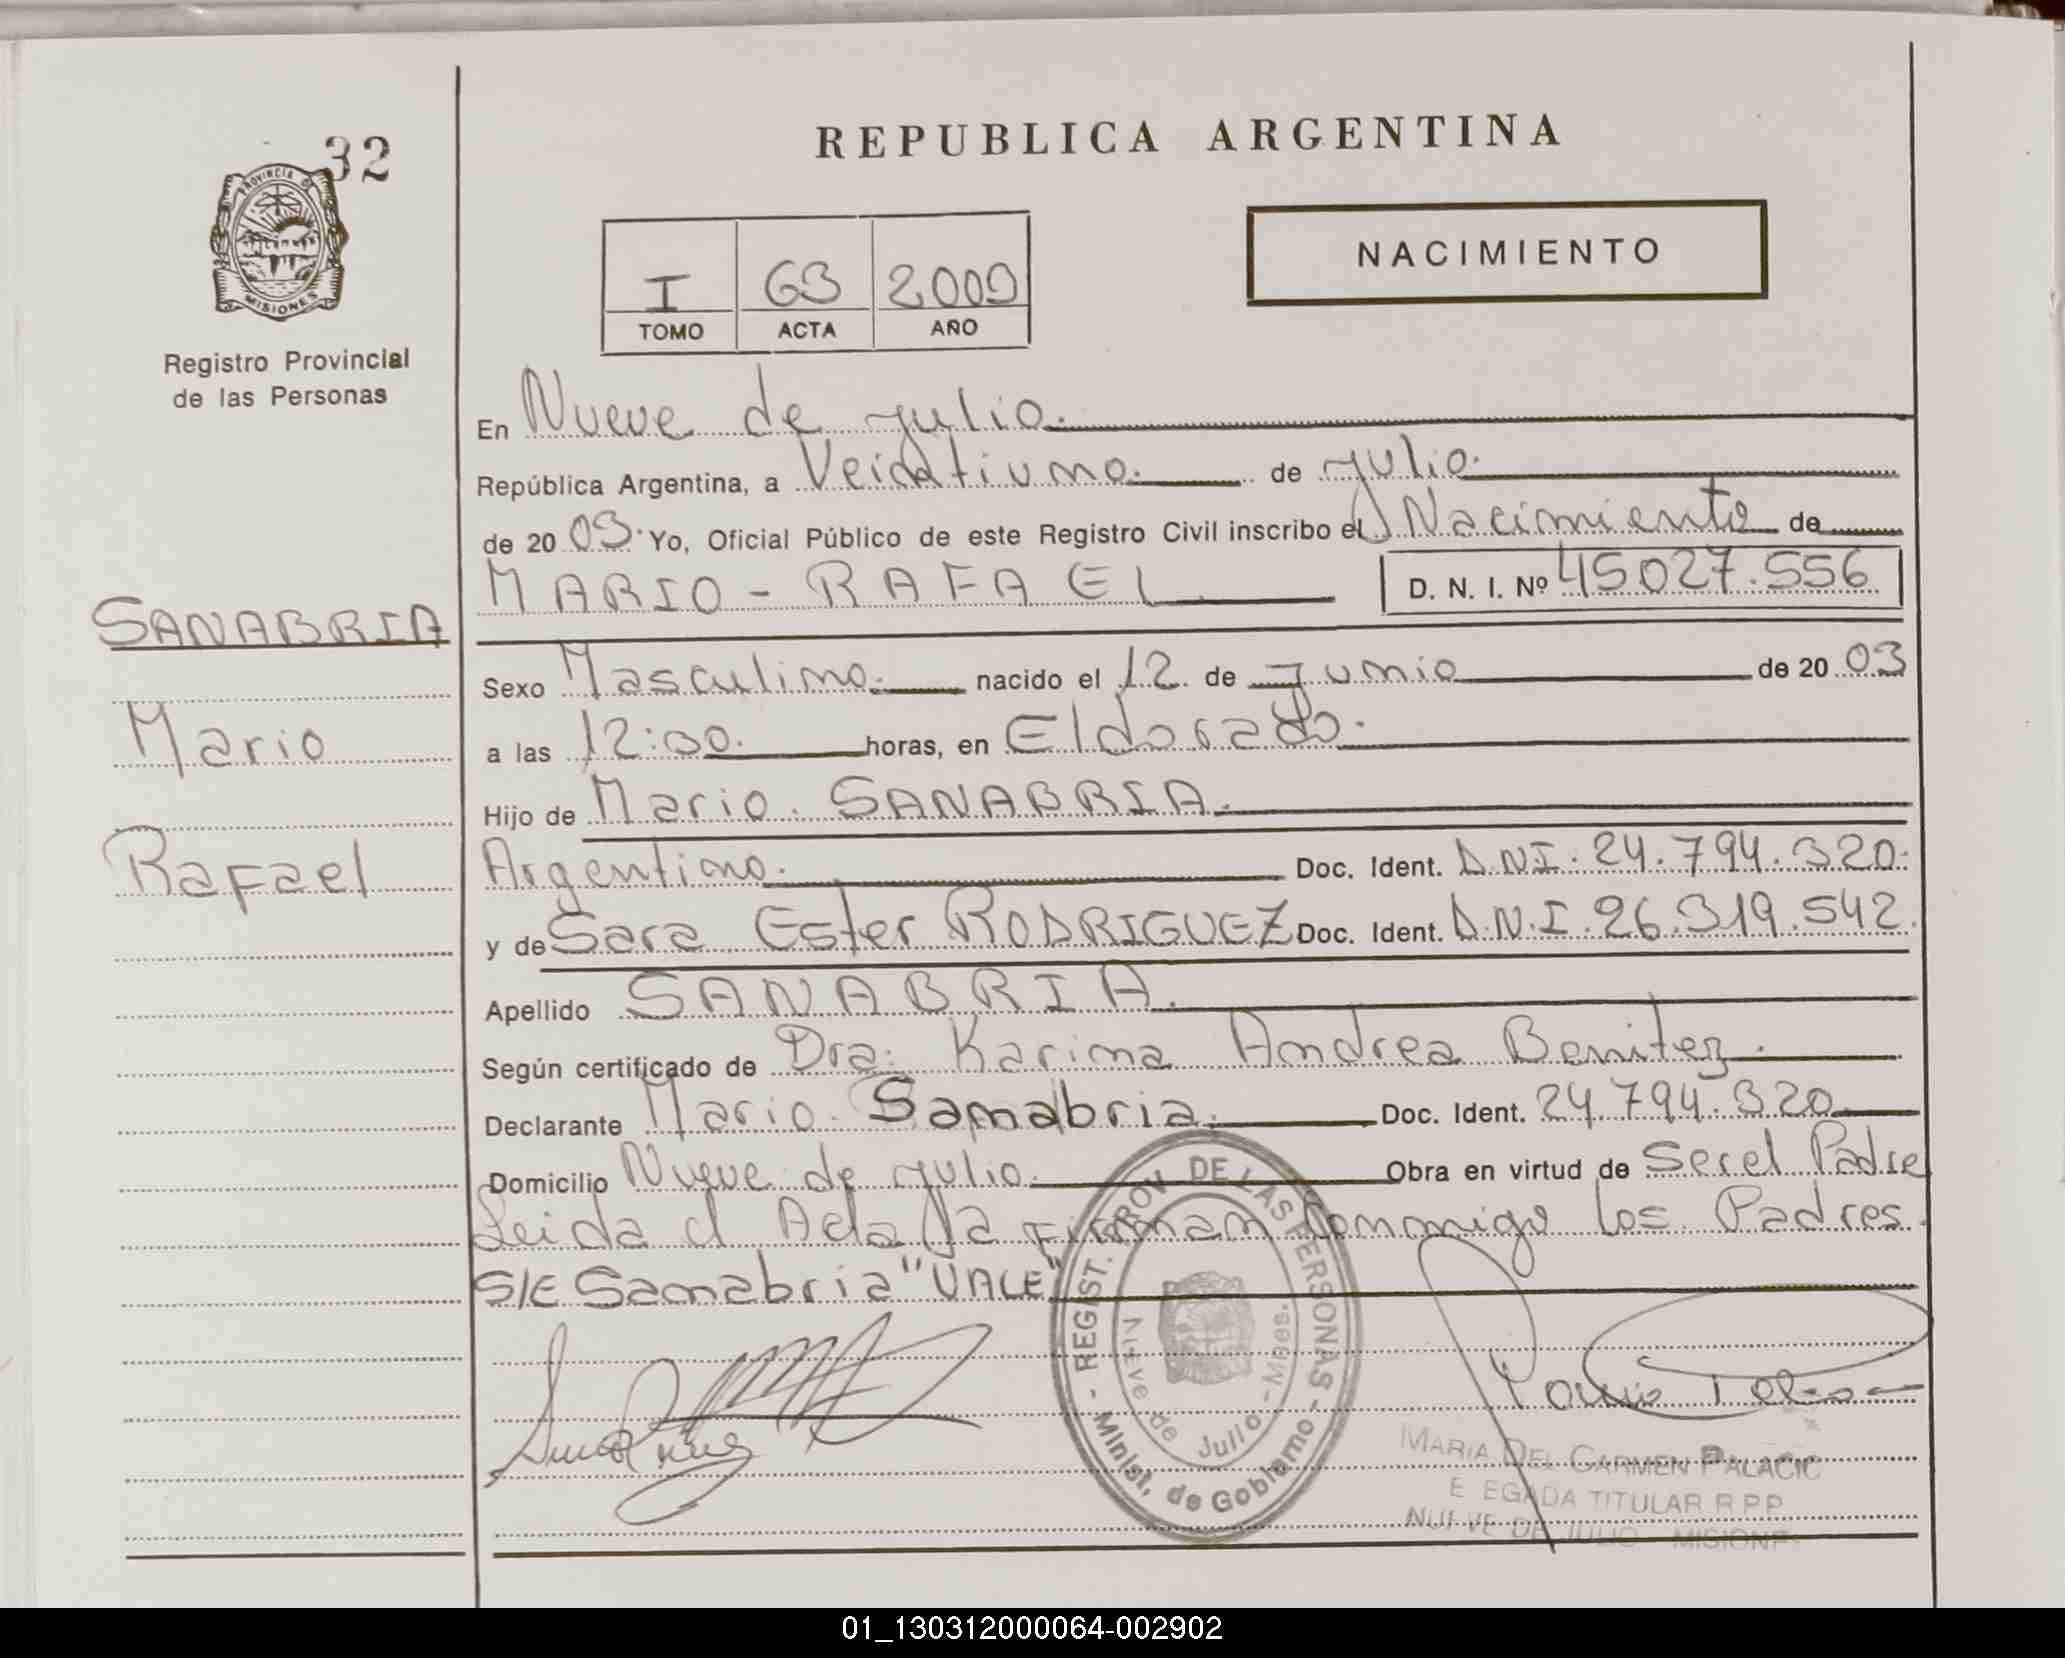 32
PROVINCIA DE
MISIONES
Registro Provincial
de las Personas
REPUBLICA ARGENTINA
NACIMIENTO
I 63 2003
TOMO ACTA AÑO
En Nueve de julio.
República Argentina, a Veintiuno. de julio.
de 20 03. Yo, Oficial Público de este Registro Civil inscribo el Nacimiento de
MARIO - RAFAEL D. N. I. Nº 45.027.556
SANABRIA
Mario
Rafael
Sexo Masculino. nacido el 12 de Junio de 20 03
a las 12:00. horas, en Eldorado.
Hijo de Mario. SANABRIA.
Argentino. Doc. Ident. D.N.I. 24.794.320.
y de Sara Ester RODRIGUEZ Doc. Ident. D.N.I. 26.319.542.
Apellido SANABRIA.
Según certificado de Dra. Karina Andrea Benitez.
Declarante Mario. Sanabria. Doc. Ident. 24.794.320
Domicilio Nueve de julio. Obra en virtud de Ser el Padre
Leida el Acta la Firman Conmigo los Padres.
S/E Sanabria "VALE"
- REGIST. PROV. DE LAS PERSONAS -
Minist. de Gobierno
Nueve de Julio - Mnes.
MARIA DEL CARMEN PALACIO
E EGADA TITULAR R.P.P.
NUEVE DE JULIO MISIONE
01_130312000064-002902